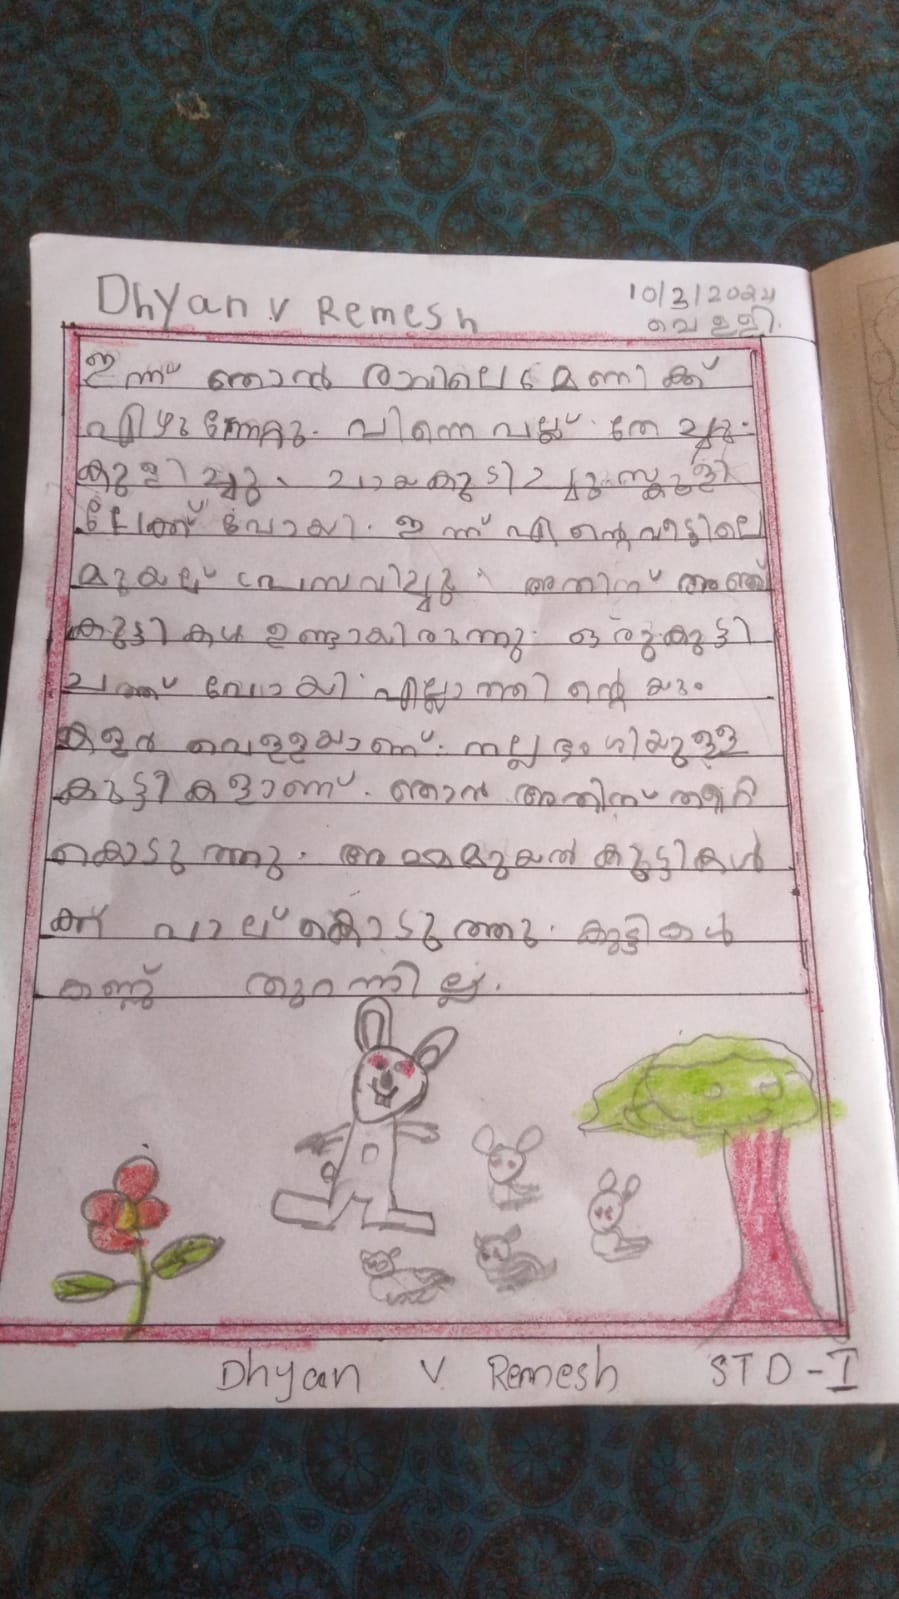 Dhyan v Remesh
10/3/2024
വെള്ളി.
ഇന്ന് ഞാൻ രാവിലെ 6 മണിക്ക്
എഴുന്നേറ്റു. പിന്നെ പല്ല് തേച്ചു.
കുളിച്ചു. ചായകുടിച്ചു സ്കൂളി
ലേക്ക് പോയി. ഇന്ന് എന്റെ വീട്ടിലെ
മുയല് പ്രസവിച്ചു. അതിന് അഞ്ച്
കുട്ടികൾ ഉണ്ടായിരുന്നു. ഒരു കുട്ടി
ചത്ത് പോയി. എല്ലാത്തിന്റെയും
കളർ വെള്ളയാണ്. നല്ല ഭംഗിയുള്ള
കുട്ടികളാണ്. ഞാൻ അതിന് തീറ്റ
കൊടുത്തു. അമ്മമുയൽ കുട്ടികൾ
ക്ക് പാല് കൊടുത്തു. കുട്ടികൾ
കണ്ണ് തുറന്നില്ല.
Dhyan V Remesh STD-I